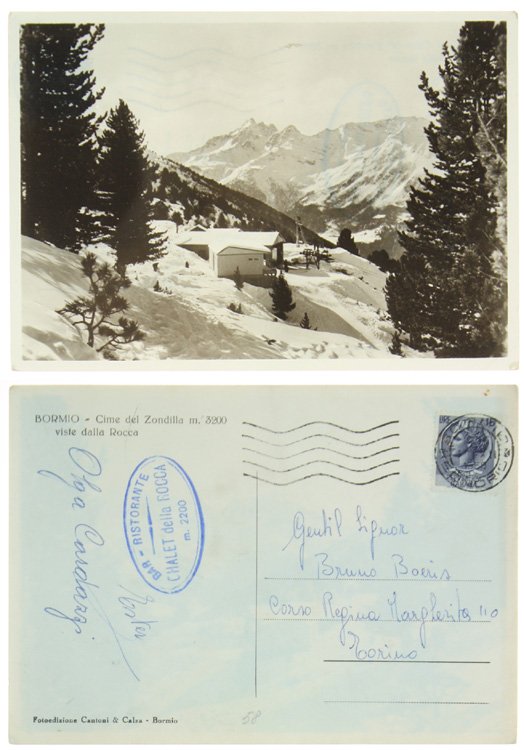 BORMIO - Cime del Zondilla m. 3200
viste dalla Rocca
BAR - RISTORANTE
CHALET della ROCCA
m. 2200
Olga
Gentil Signor
Bruno Boeris
Corso Regina Margherita 110
Torino
Fotoedizione Cantoni & Calza - Bormio
58